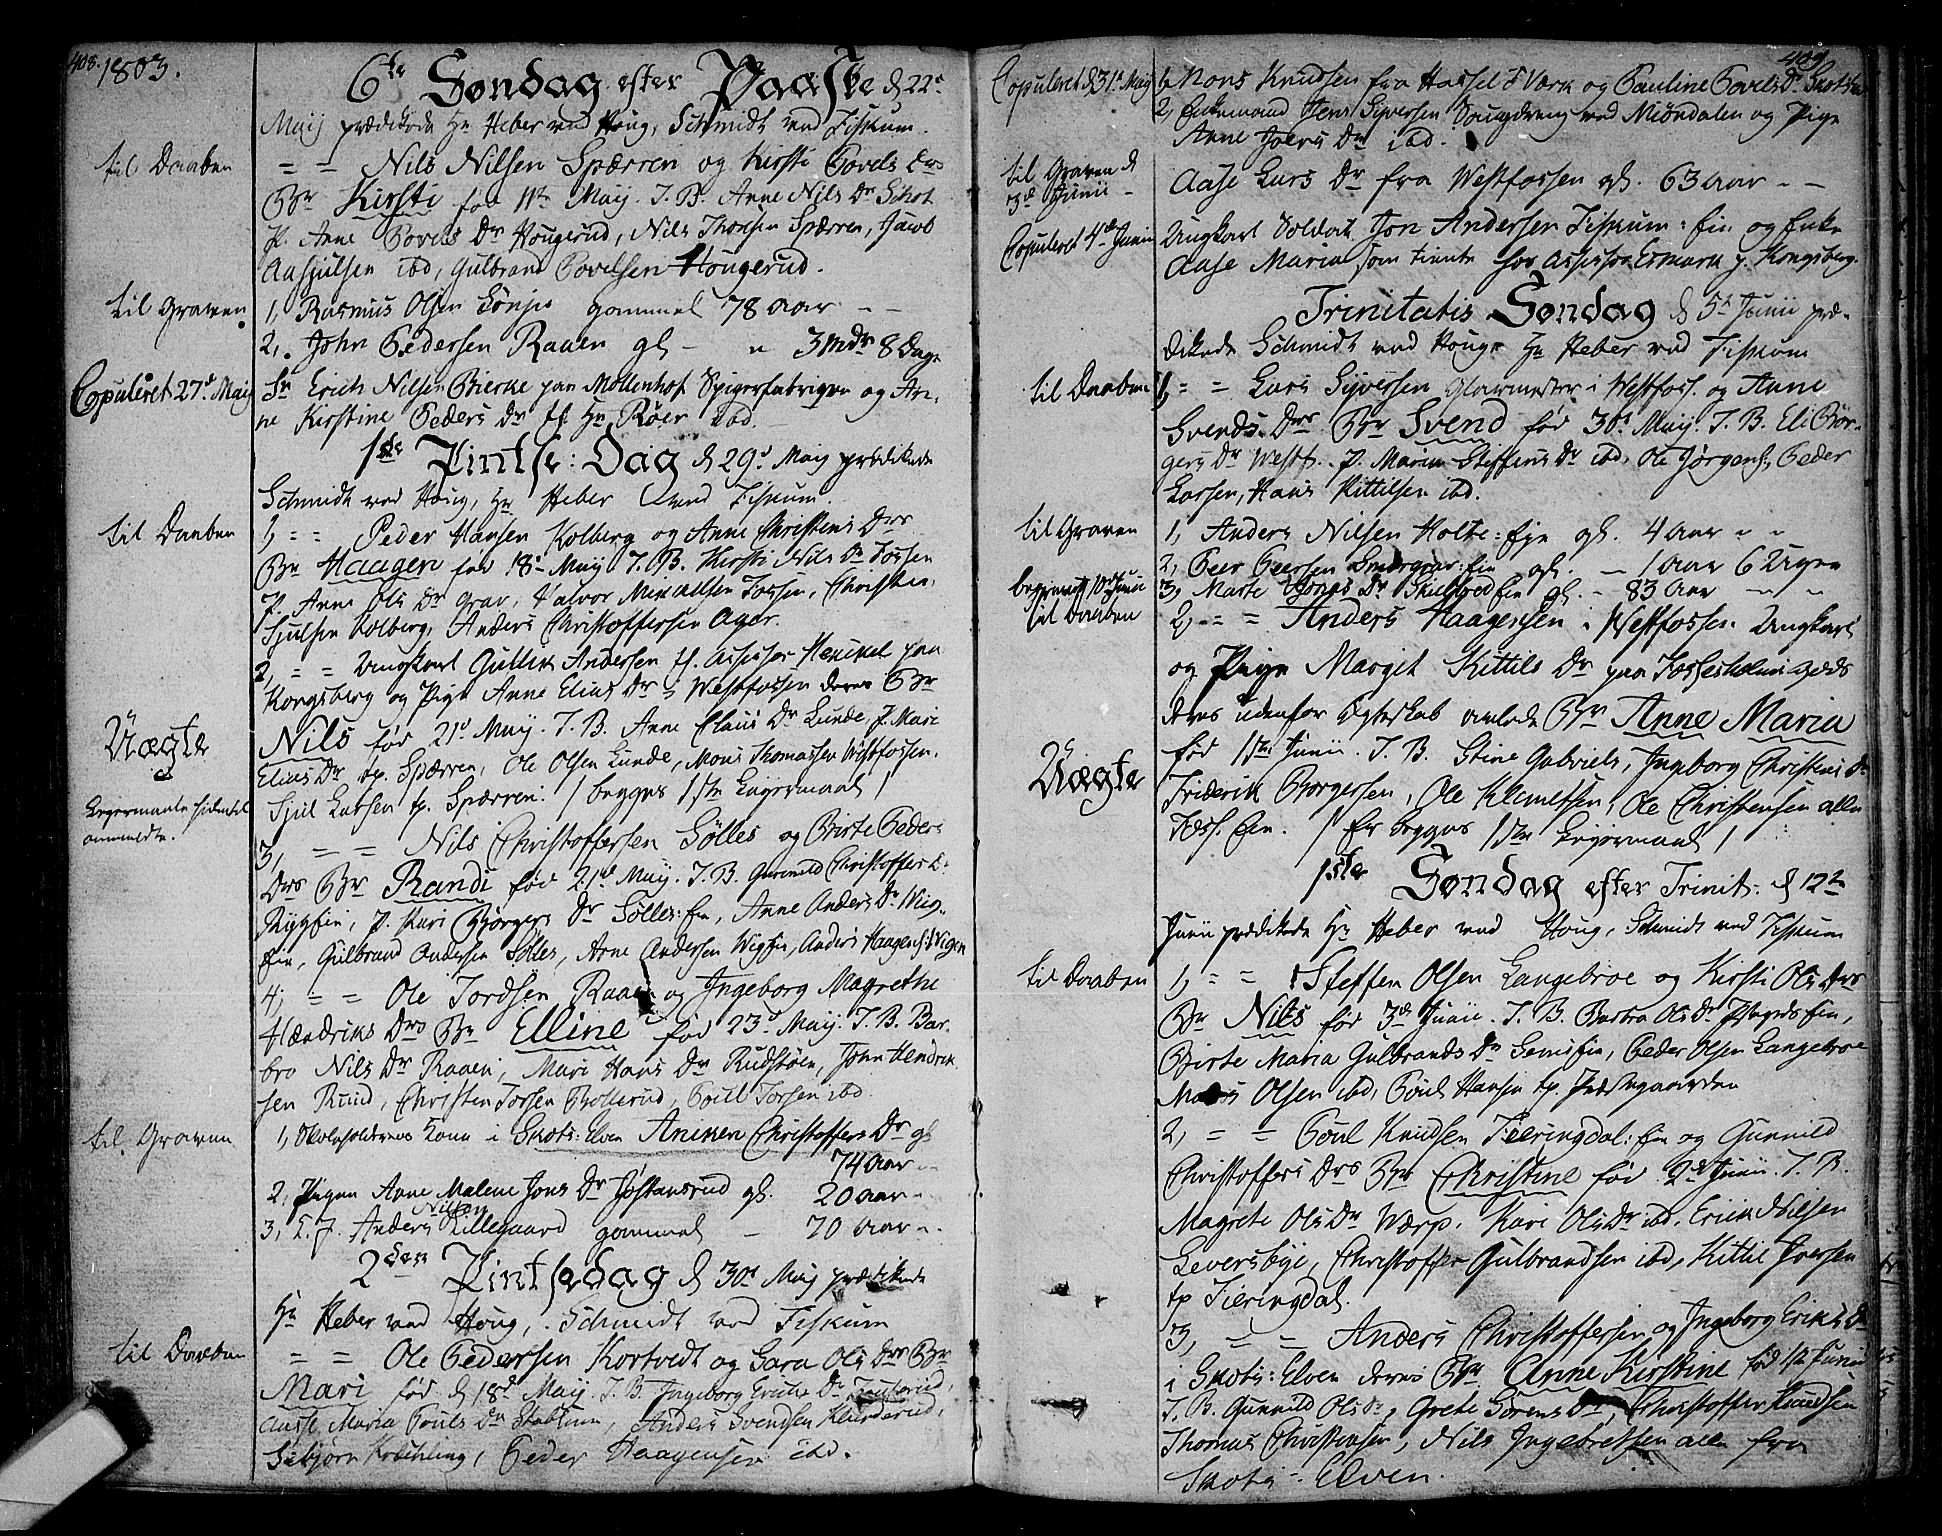 408. 1803.
6te Søndag efter Paaske d 22de
Maij prædikede Hr Heber ved Houg, Schmidt ved Fiskum.
til Daaben = = Nils Nilsen Spærren og Kirsti Povels Drs
Br Kirsti før 11te Maij. T. B. Anne Nils Dr Schot
P. Anne Povels Dr Hougerud, Nils Thorsen Spærren, Jacob
Aasjulsen ibd, Gulbrand Povelsen Hougerud.
til Graven 1, Rasmus Olsen gammel 78 aar - -
2, John Pedersen Raaen gl - " 3 Mdr 8 Dage
Copuleret 27de Maij Sr Erich Nilsen Bierke paa Mollenhof Spigerfabriqven og An-
ne Kirstine Peders Dr tf Hr Røer ibd.
1ste Pintse: Dag d 29de Maij prædikede
Schmidt ved Houg, Hr Heber ved Fiskum.
til Daaben 1, = = Peder Hansen Kolberg og Anne Christens Drs
Br Haagen før 18de Maij T. B. Kirsti Nils Dr Fossen
P. Anne Ols Dr Grav, Halvor Mikaelsen Fossen, Christen
Tjulsen Kolberg, Anders Christoffersen Ager.
2, = = Ungkarl Gullik Andersen tf. Assessor Henckel paa
Kongsberg og Pige Anne Elias Dr i Westfossen deres Br
Uægte Nils før 21de Maij. T. B. Anne Claus Dr Lunde, P. Mari
Elias Dr tp. Spærren, Ole Olsen Lunde, Mons Thomassen Westfossen,
Leyermaalet sidentil
anmeldte.
Tjul Larsen tp. Spærren. / begges 1ste Leyermaal /
3, = = Nils Christoffersen Sølles og Birte Peders
Drs Br Randi før 21de Maij. T. B. Gunnild Christoffer D.
Rygfin, P. Kari Børgers Dr Sølles: fin, Anne Anders Dr Wig-
fin, Gulbrand Andersen Sølles, Arne Andersen Wigfin, Anders Haagens: Wigen
4, = = Ole Tordsen Raaen og Ingeborg Magrethe
Hændriks Drs Br Elline før 23de Maij. T. B. Bar-
bro Nils Dr Raaen, Mari Hans Dr Rudstøen, John Hendrik
sen Ruud, Christen Torsen Bollerud, Poul Torsen ibd.
til Graven 1, Skoleholderens Kone i Skots: Elven Anneken Christoffers Dr gl
74 aar -
2, Pigen Anne Malene Jons Dr Jøstansrud gl. 20 aar -
3, L. f. Anders Nilsen Lillegaard gammel - 70 aar -
2den Pintsedag d 30de Maij prædikede
Hr Heber ved Houg, Schmidt ved Fiskum
til Daaben = = Ole Pedersen Kortvedt og Sara Ols Drs Br
Mari før d 18de Maij. T. B. Ingeborg Erichs Dr
Maria Pouls Dr Stablum, Anders Svendsen Klunderud,
Sebjørn Krækling, Peder Haagensen ibd.
409.
Copuleret d 31te Maij 1, Mons Knudsen fra Hassel: Værk og Pauline Povels Dr Skotselv
2, Enkemand Jens Syversen Saugdreng ved Miøndalen og Pige
Anne Joens Dr ibd.
til Graven d
3de Junii - Aase Lars Dr fra Westfossen gl. 63 aar - -
Copuleret 4de Junii Ungkarl Soldat Jon Andersen Fiskum: fin og Enke
Aase Maria som tiente hos Assessor Esmark p. Kongsberg.
Trinitatis Søndag d 5te Junii præ-
dikede Schmidt ved Houg Hr Heber ved Fiskum
til Daaben 1, = = Lars Syversen Glarmester i Westfoss. og Anne
Svends Drs Br Svend før 30te Maij. T. B. Eli Bør-
gers Dr Westf. P. Maria Steffens Dr ibd, Ole Jørgens:, Peder
Larsen, Hans Kittilsen ibd.
til Graven 1, Anders Nilsen Holte: eje gl. 4 aar " "
2, Peer Peersen Smørgrav: fin gl. - 1 aar 6 Uger
begravet 10de Junii 3, Marte Jonas Dr Skilbred fin gl. - 83 aar - "
til Daaben 2, = = Anders Haagensen i Westfossen Ungkarl
og Pige Margit Kittils Dr paa Fossesholms
deres udenfor Egteskab avlede Br Anne Maria
Uægte før 1ste Junii. T. B. Stine Gabriels, Ingeborg Christens Dr
Friderik Børgersen, Ole Klemetsen, Ole Christensen alle
Foss. Een. / Er begges 1ste Leyermaal /
1ste Søndag efter Trinit: d 12te
Junii prædikede Hr Heber ved Houg, Schmidt ved Fiskum
til Daaben 1, = = Steffen Olsen Langebroe og Kirsti Ols Drs
Br Nils før 3de Junii. T. B. Barbra Ols Dr
Birte Maria Gulbrands Dr Semsfin, Peder Olsen Langebroe
Mons Olsen ibd, Poul Hansen tp. Præstegaarden
2, = = Poul Knudsen Tieringdal: fin og Gunnild
Christoffers Drs Br Christine før 2de Junii. T. B.
Magrete Ols Dr Wærp, Kari Ols Dr ibd, Erick Nilsen
Leversbye, Christoffer Gulbrandsen ibd, Kittil Iversen
tp Tieringdal.
3, = = Anders Christoffersen og Ingeborg Eriks Dr
i Skots: Elven deres Br Anne Kirstine fød 1ste Junii
T. B. Gunnild Ols Dr, Grete Sørens Dr, Christoffer Knudsen
Thomas Christensen, Nils Ingebretsen alle fra
Skots - Elven.